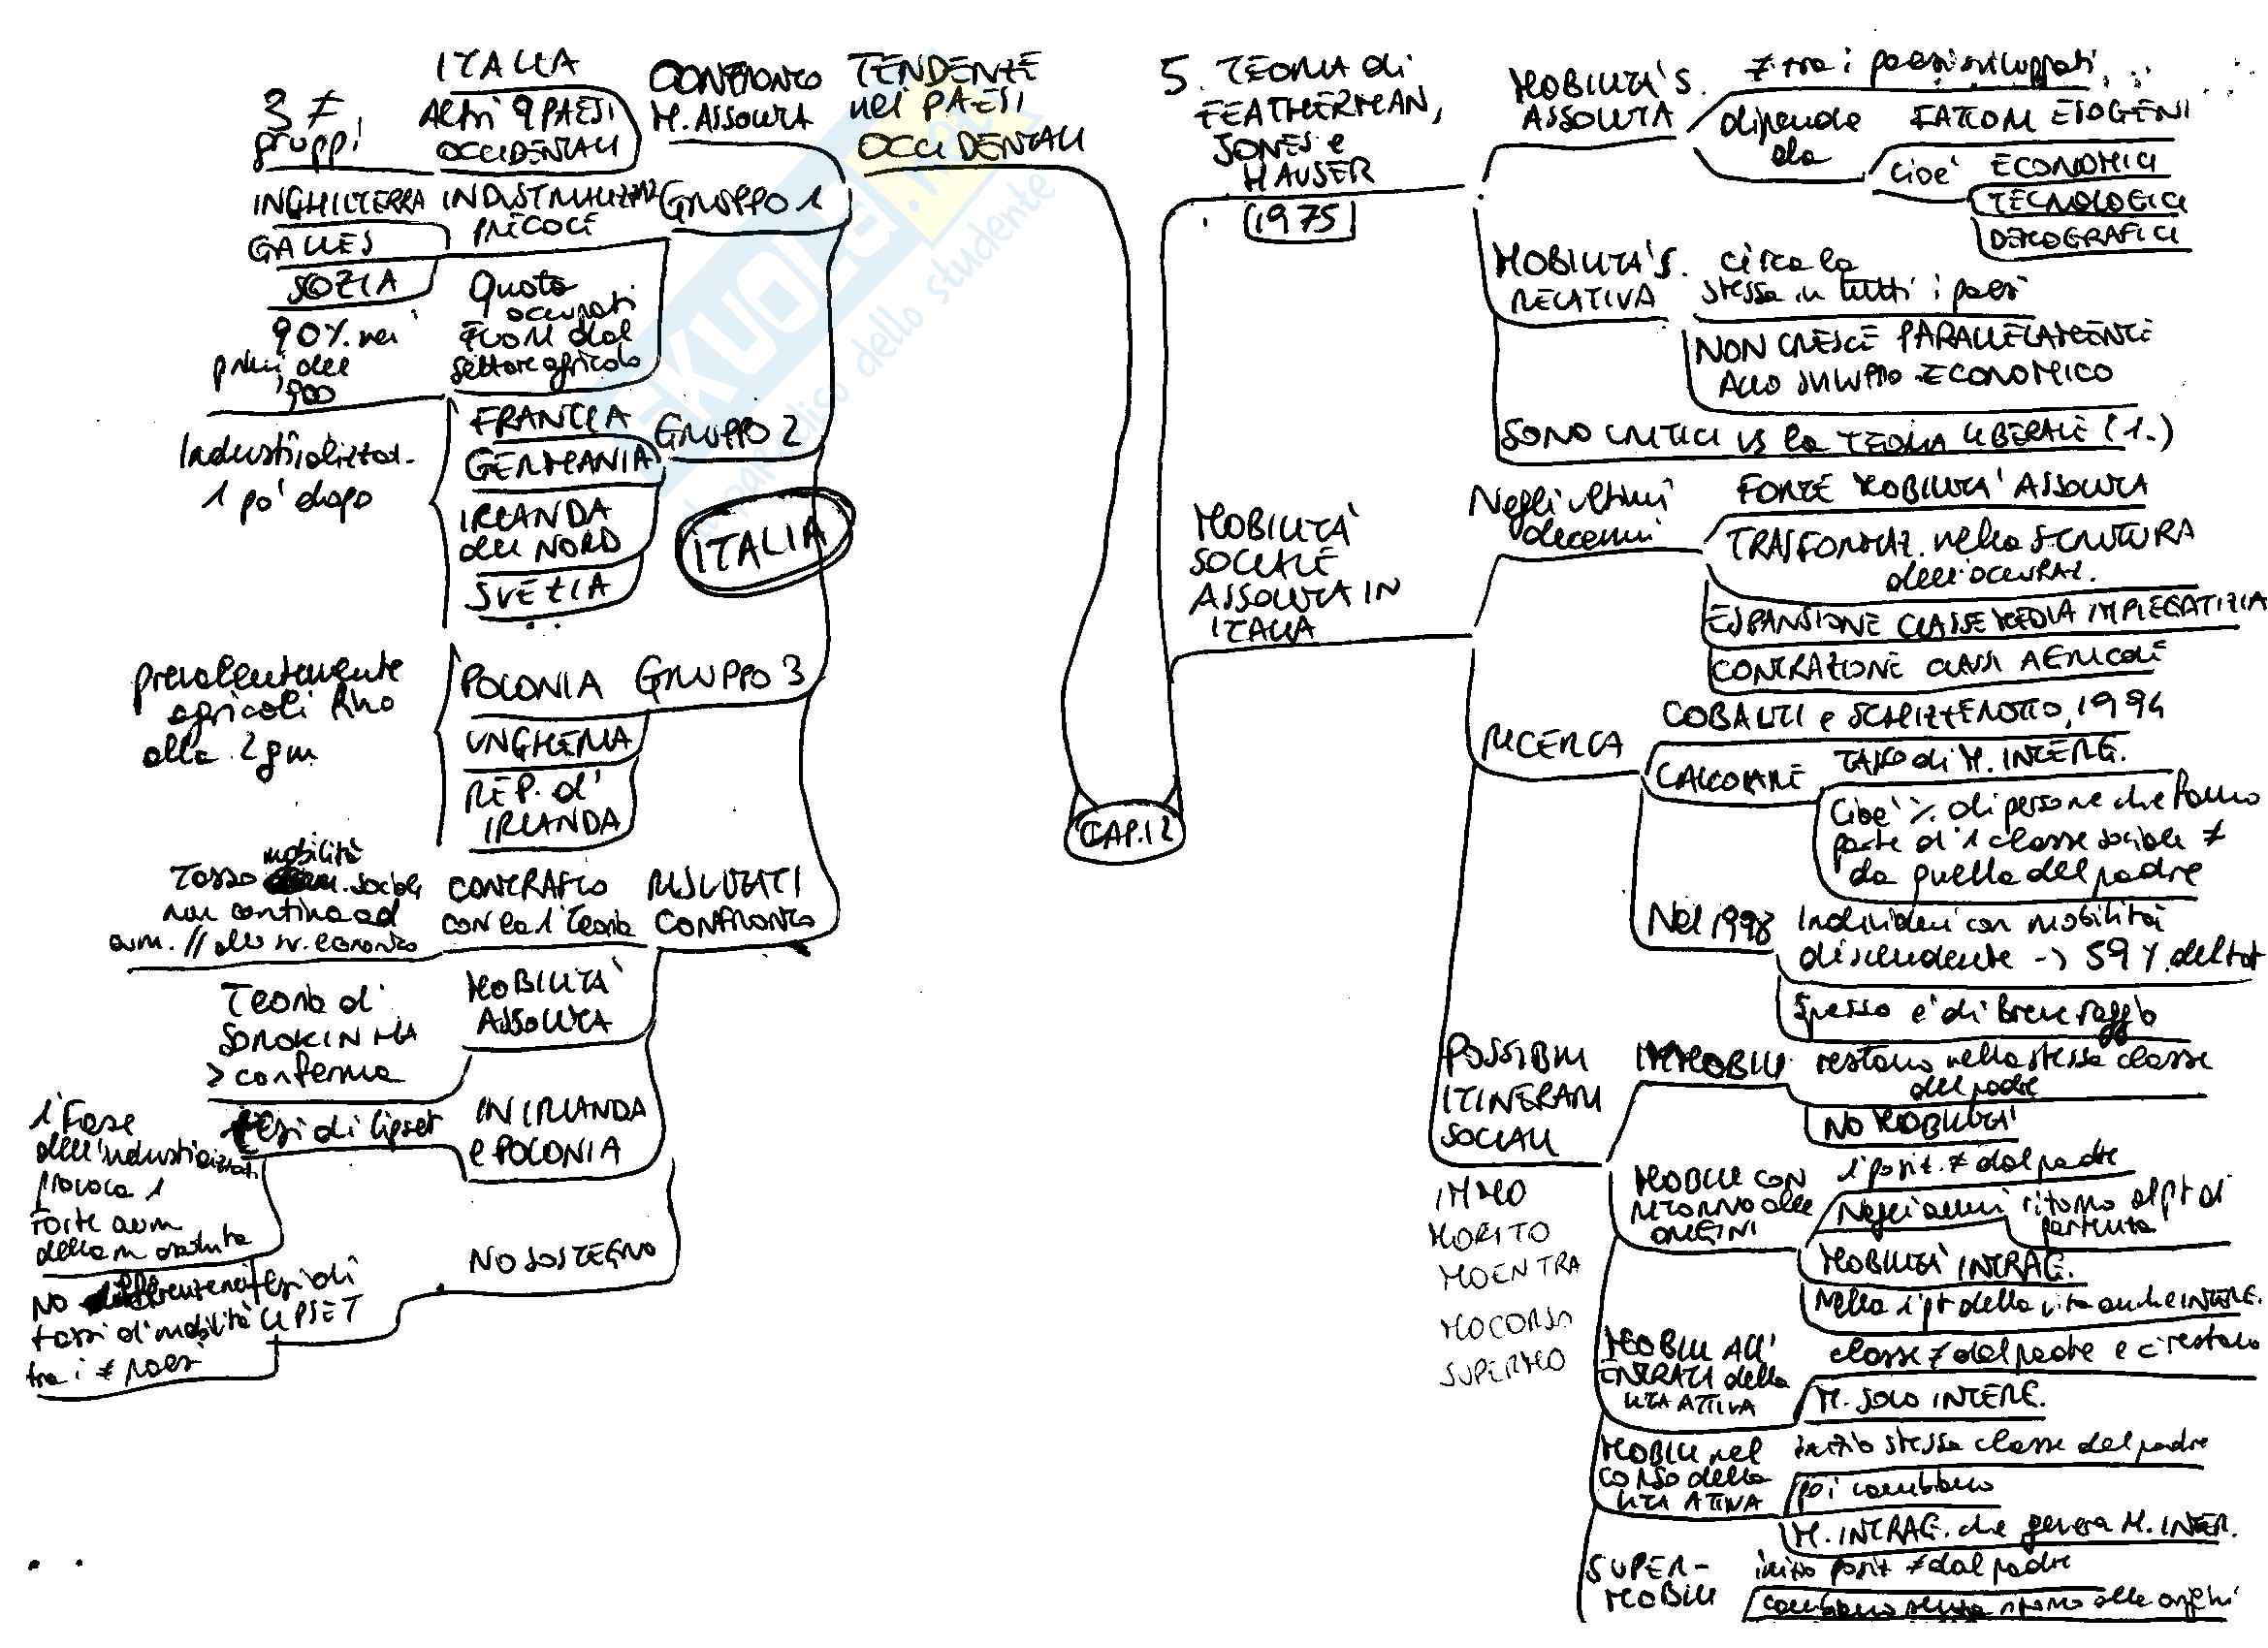 CAP. 12
TENDENZE
nei PAESI
OCCIDENTALI
CONFRONTO
M. ASSOLUTA
ITALIA
Altri 9 PAESI
OCCIDENTALI
3 ≠
gruppi
GRUPPO 1
INDUSTRIALIZZAZ
PRECOCE
INGHILTERRA
GALLES
SCOZIA
Quota
occupati
FUORI dal
settore agricolo
90% nei
primi del
'900
GRUPPO 2
FRANCIA
GERMANIA
IRLANDA
del NORD
SVEZIA
Industrializzaz.
1 po' dopo
ITALIA
GRUPPO 3
POLONIA
UNGHERIA
REP. d'
IRLANDA
prevalentemente
agricoli fino
alla 2gm
RISULTATI
CONFRONTO
CONTRASTO
con la 1ª Teoria
Tasso mobilità sociale
non continua ad
aum. // allo sv. economico
MOBILITÀ
ASSOLUTA
Teoria di
SOROKIN HA
> conferma
IN IRLANDA
e POLONIA
tesi di Lipset
1ª Fase
dell'industrializzaz
provoca 1
forte aum
della m assoluta
NO SOSTEGNO
tesi di
LIPSET
NO
tassi di mobilità
tra i ≠ paesi
5. TEORIA di
FEATHERMAN,
JONES e
HAUSER
1975
MOBILITA' S.
ASSOLUTA
≠ tra i paesi sviluppati
dipende
da
FATTORI ESOGENI
cioè ECONOMICI
TECNOLOGICI
DEMOGRAFICI
MOBILITA' S.
RELATIVA
circa la
stessa in tutti i paesi
NON CRESCE PARALLELAMENTE
ALLO SVILUPPO ECONOMICO
SONO CRITICI vs la TEORIA LIBERALE (1.)
MOBILITÀ
SOCIALE
ASSOLUTA IN
ITALIA
Negli ultimi
decenni
FORTE MOBILITA' ASSOLUTA
TRASFORMAZ. nella STRUTTURA
dell'occupaz.
ESPANSIONE CLASSE MEDIA IMPIEGATIZIA
CONTRAZIONE CLASSI AGRICOLE
RICERCA
COBALTI e SCHIZZEROTTO, 1994
CALCOLARE
TASSO di M. INTERG.
Cioè % di persone che fanno
parte d'1 classe sociale ≠
da quella del padre
Nel 1998
Individui con mobilità
discendente -> 59%. del tot
Spesso è di breve raggio
POSSIBILI
ITINERARI
SOCIALI
IMMOBILI
restano nella stessa classe
del padre
NO MOBILITA'
MOBILI CON
RITORNO alle
ORIGINI
1ª posit. ≠ dal padre
Negli anni ritorno al pt di
partenza
MOBILITÀ INTRAG.
nella 1ª pt della vita anche INTERG.
MOBILI ALL'
ENTRATA della
VITA ATTIVA
classe ≠ dal padre e ci restano
M. SOLO INTERG.
MOBILI nel
CORSO della
VITA ATTIVA
inizio stessa classe del padre
poi cambiano
M. INTRAG. che genera M. INTER.
SUPER-
MOBILI
inizio posit ≠ dal padre
cambiano senza ritorno alle origini
IMMO
MORITO
MOENTRA
MOCORSO
SUPERMO
dello studente